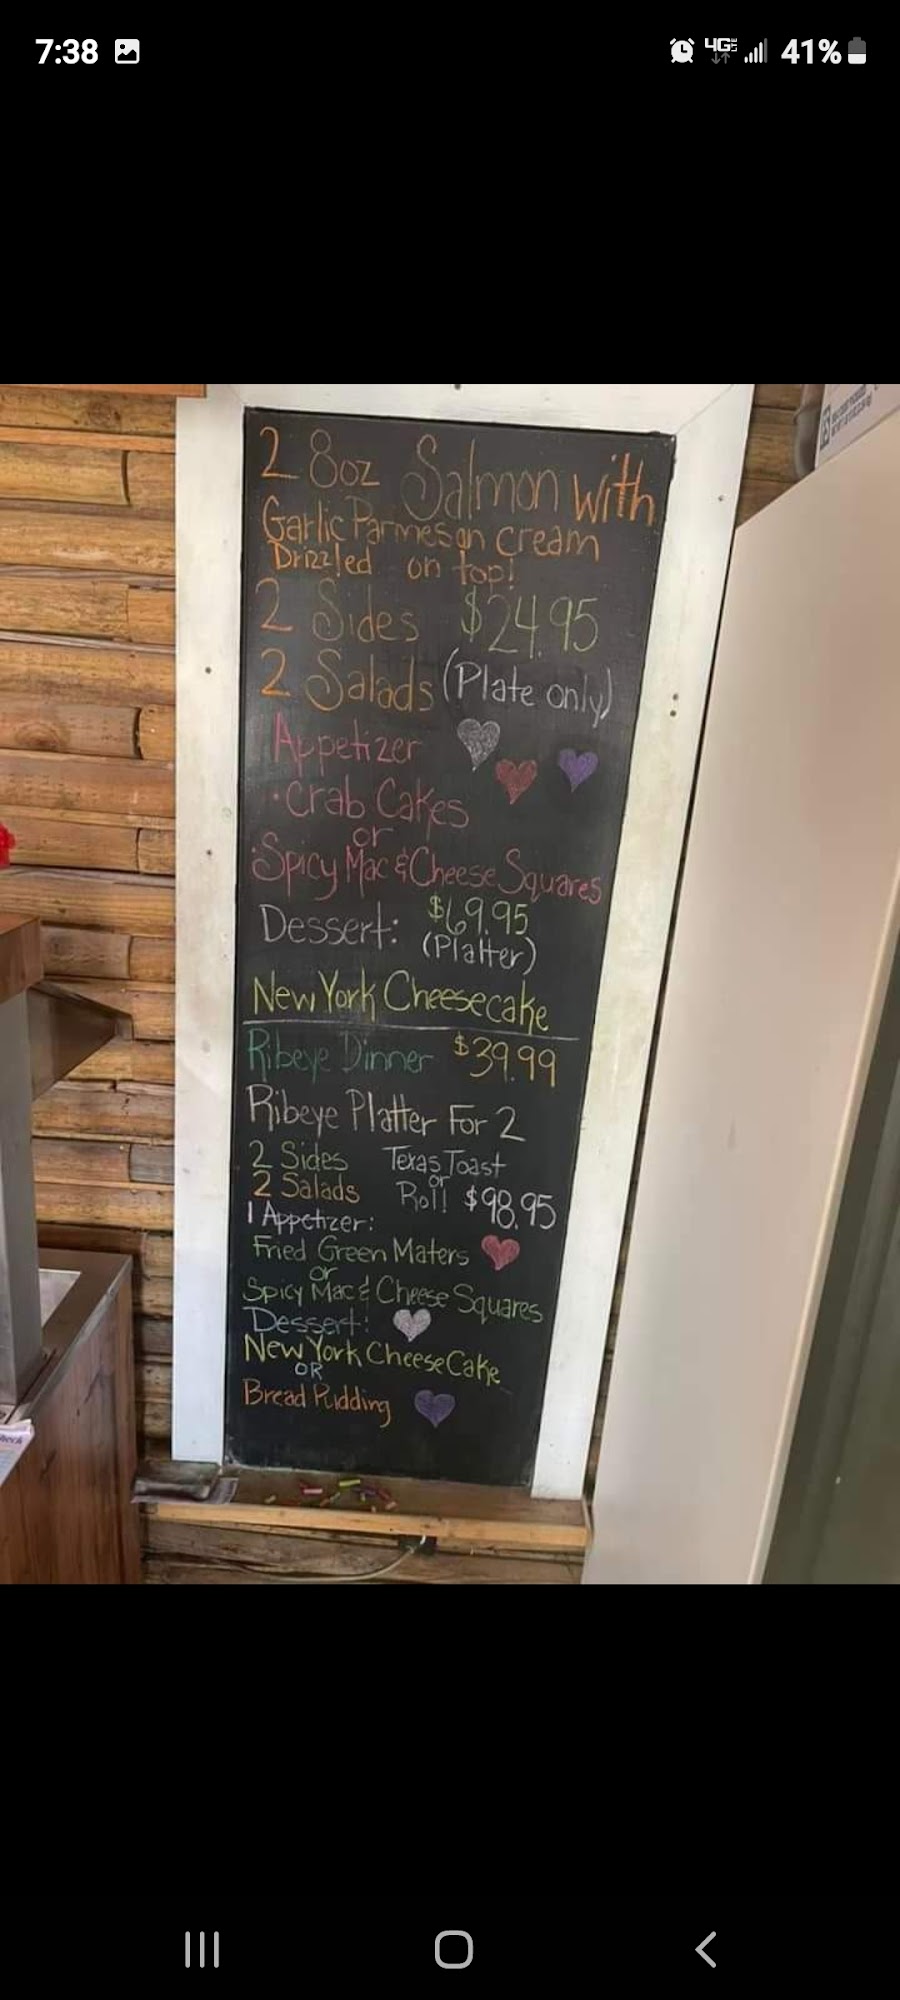 7:38
4G LTE 41%
2 8oz Salmon with
Garlic Parmesan cream
Drizzled on top!
2 Sides $24.95
2 Salads (Plate only)
Appetizer
· Crab Cakes
or
· Spicy Mac & Cheese Squares
Dessert: $69.95
(Platter)
New York Cheesecake
Ribeye Dinner $39.99
Ribeye Platter For 2
2 Sides Texas Toast
or
2 Salads Roll $98.95
1 Appetizer:
Fried Green Maters
or
Spicy Mac & Cheese Squares
Dessert:
New York CheeseCake
OR
Bread Pudding